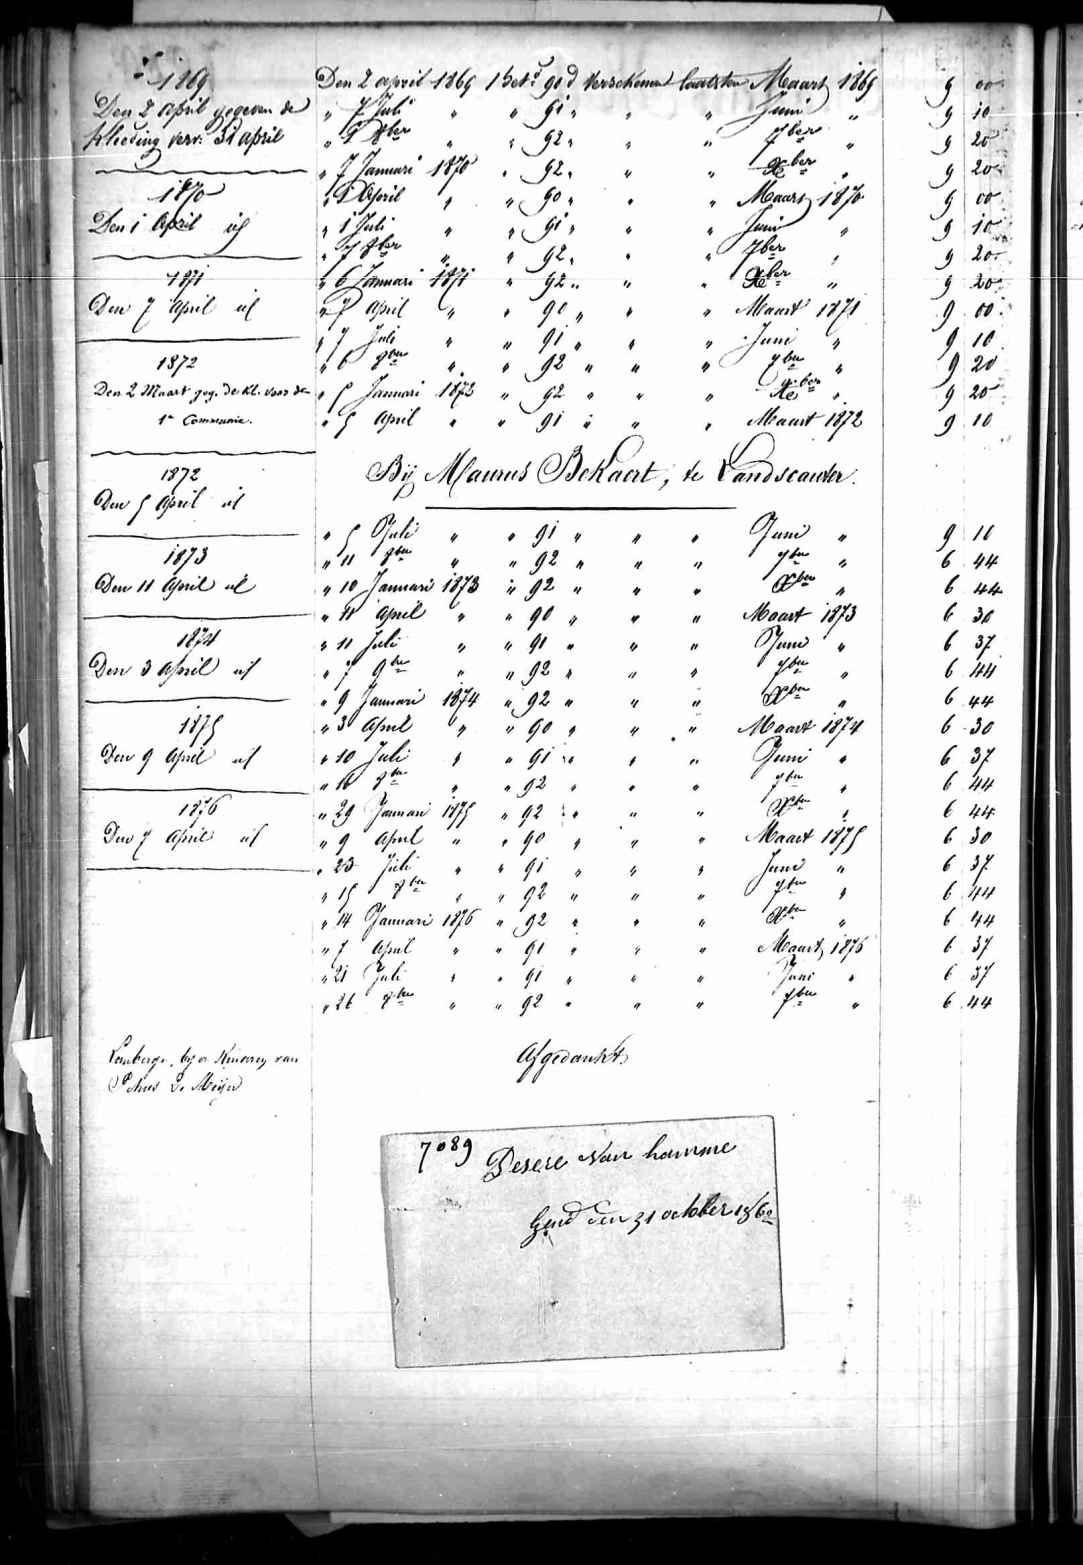 1869
Den 2 april gegeven de
kleeding verv: 31 april
1870
Den 1 April id
1871
Den 7 April id
1872
Den 2 Maart geg. de kl. voor de
1e Communie.
1872
Den 5 April id
1873
Den 11 April id
1874
Den 3 April id
1875
Den 9 April id
1876
Den 7 April id
Den 2 april 1869 Bet. 90 d verschenen laatsten Maart 1869 9 00
" 7 Juli " " 91 " " " Juni " 9 10
" 9 8ber " " 92 " " " 7ber " 9 20
" 7 Januari 1870 " 92 " " " Xber " 9 20
" 1 April " " 90 " " " Maart 1870 9 00
" 1 Juli " " 91 " " " Juni " 9 10
" 7 8ber " " 92 " " " 7ber " 9 20
" 6 Januari 1871 " 92 " " " Xber " 9 20
" 7 April " " 90 " " " Maart 1871 9 00
" 7 Juli " " 91 " " " Juni " 9 10
" 6 8ber " " 92 " " " 7ber " 9 20
" 5 Januari 1872 " 92 " " " Xber " 9 20
" 5 April " " 91 " " " Maart 1872 9 10
Bij Maurus Bekaert, te Landscauter.
" 5 Juli " " 91 " " " Juni " 9 10
" 11 8ber " " 92 " " " 7ber " 6 44
" 10 Januari 1873 " 92 " " " Xber " 6 44
" 11 April " " 90 " " " Maart 1873 6 30
" 11 Juli " " 91 " " " Juni " 6 37
" 7 9ber " " 92 " " " 7ber " 6 44
" 9 Januari 1874 " 92 " " " Xber " 6 44
" 3 April " " 90 " " " Maart 1874 6 30
" 10 Juli " " 91 " " " Juni " 6 37
" 16 8ber " " 92 " " " 7ber " 6 44
" 29 Januari 1875 " 92 " " " Xber " 6 44
" 9 April " " 90 " " " Maart 1875 6 30
" 23 Juli " " 91 " " " Juni " 6 37
" 15 8ber " " 92 " " " 7ber " 6 44
" 14 Januari 1876 " 92 " " " Xber " 6 44
" 7 April " " 91 " " " Maart 1876 6 37
" 21 Juli " " 91 " " " Juni " 6 37
" 26 8ber " " 92 " " " 7ber " 6 44
Lemberge, by de Kinderen van
De Meijer
Afgedankt
7089 Desere Van hamme
Gend den 31 october 1860